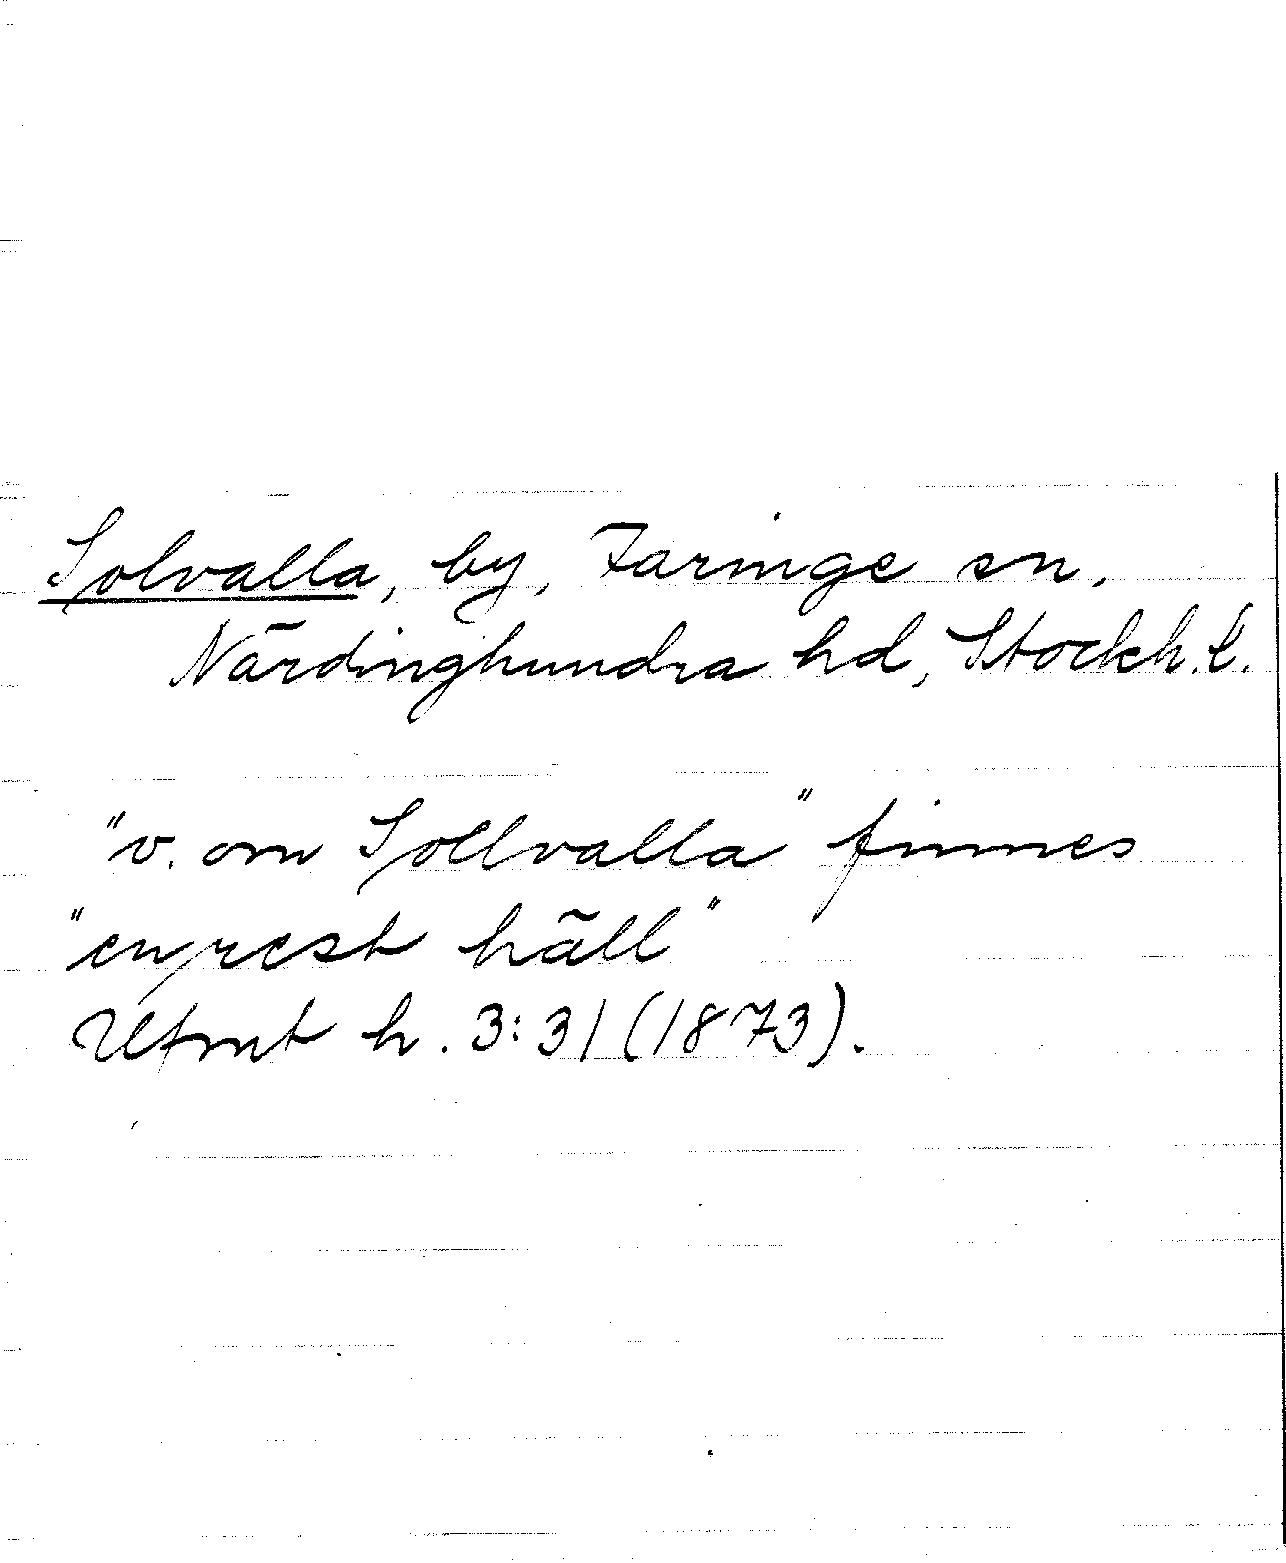 Solvalla, by, Faringe sn,
Närdinghundra hd, Stockh.l.
"v. om Sollvalla" finnes
"en rest häll"
Ufmt h. 3:31 (1873).